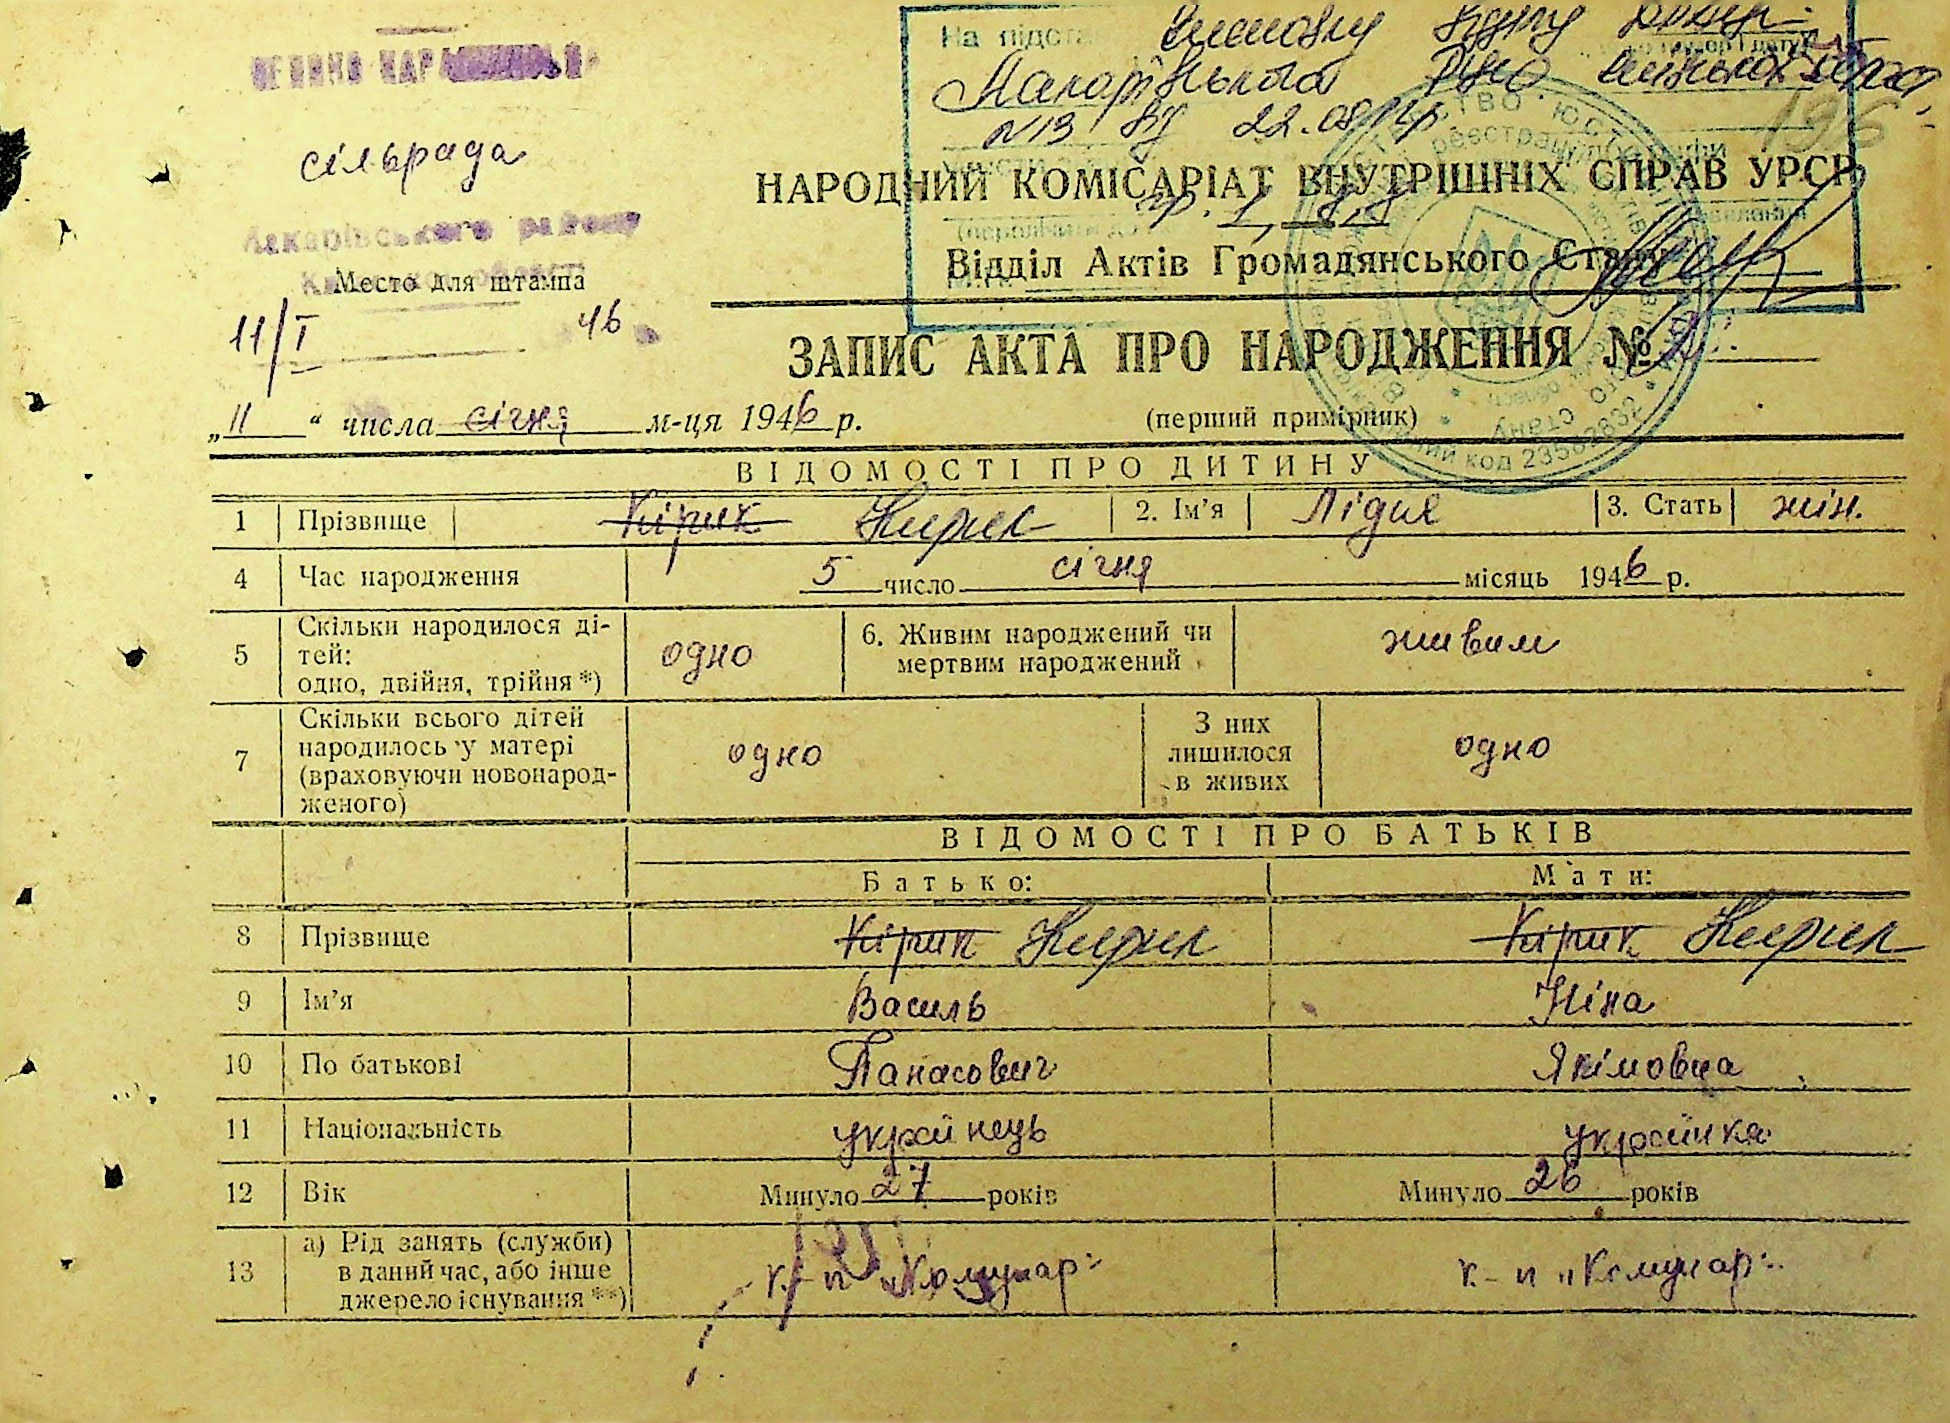 сільрада
Макарівського району
Место для штампа
11/I 46
На підст
Макарівського
№13 від 22.08
НАРОДНИЙ КОМІСАРІАТ ВНУТРІШНІХ СПРАВ УРСР
гр. 1, 8, 8
Відділ Актів Громадянського Стану
ЗАПИС АКТА ПРО НАРОДЖЕННЯ № 2
„11“ числа січня м-ця 1946 р. (перший примірник)
ВІДОМОСТІ ПРО ДИТИНУ
1 Прізвище Кірик Кирик 2. Ім’я Лідия 3. Стать жін.
4 Час народження 5 число січня місяць 1946 р.
5 Скільки народилося ді-
тей:
одно, двійня, трійня *) одно 6. Живим народжений чи
мертвим народжений живим
7 Скільки всього дітей
народилось у матері
(враховуючи новонарод-
женого) одно З них
лишилося
в живих одно
ВІДОМОСТІ ПРО БАТЬКІВ
Батько: Мати:
8 Прізвище Кірик Кирик Кірик Кирик
9 Ім’я Василь Ніна
10 По батькові Панасович Якімовна
11 Національність українець українка
12 Вік Минуло 27 років Минуло 26 років
13 а) Рід занять (служби)
в даний час, або інше
джерело існування **) к-п „Комунар" к-п „Комунар"